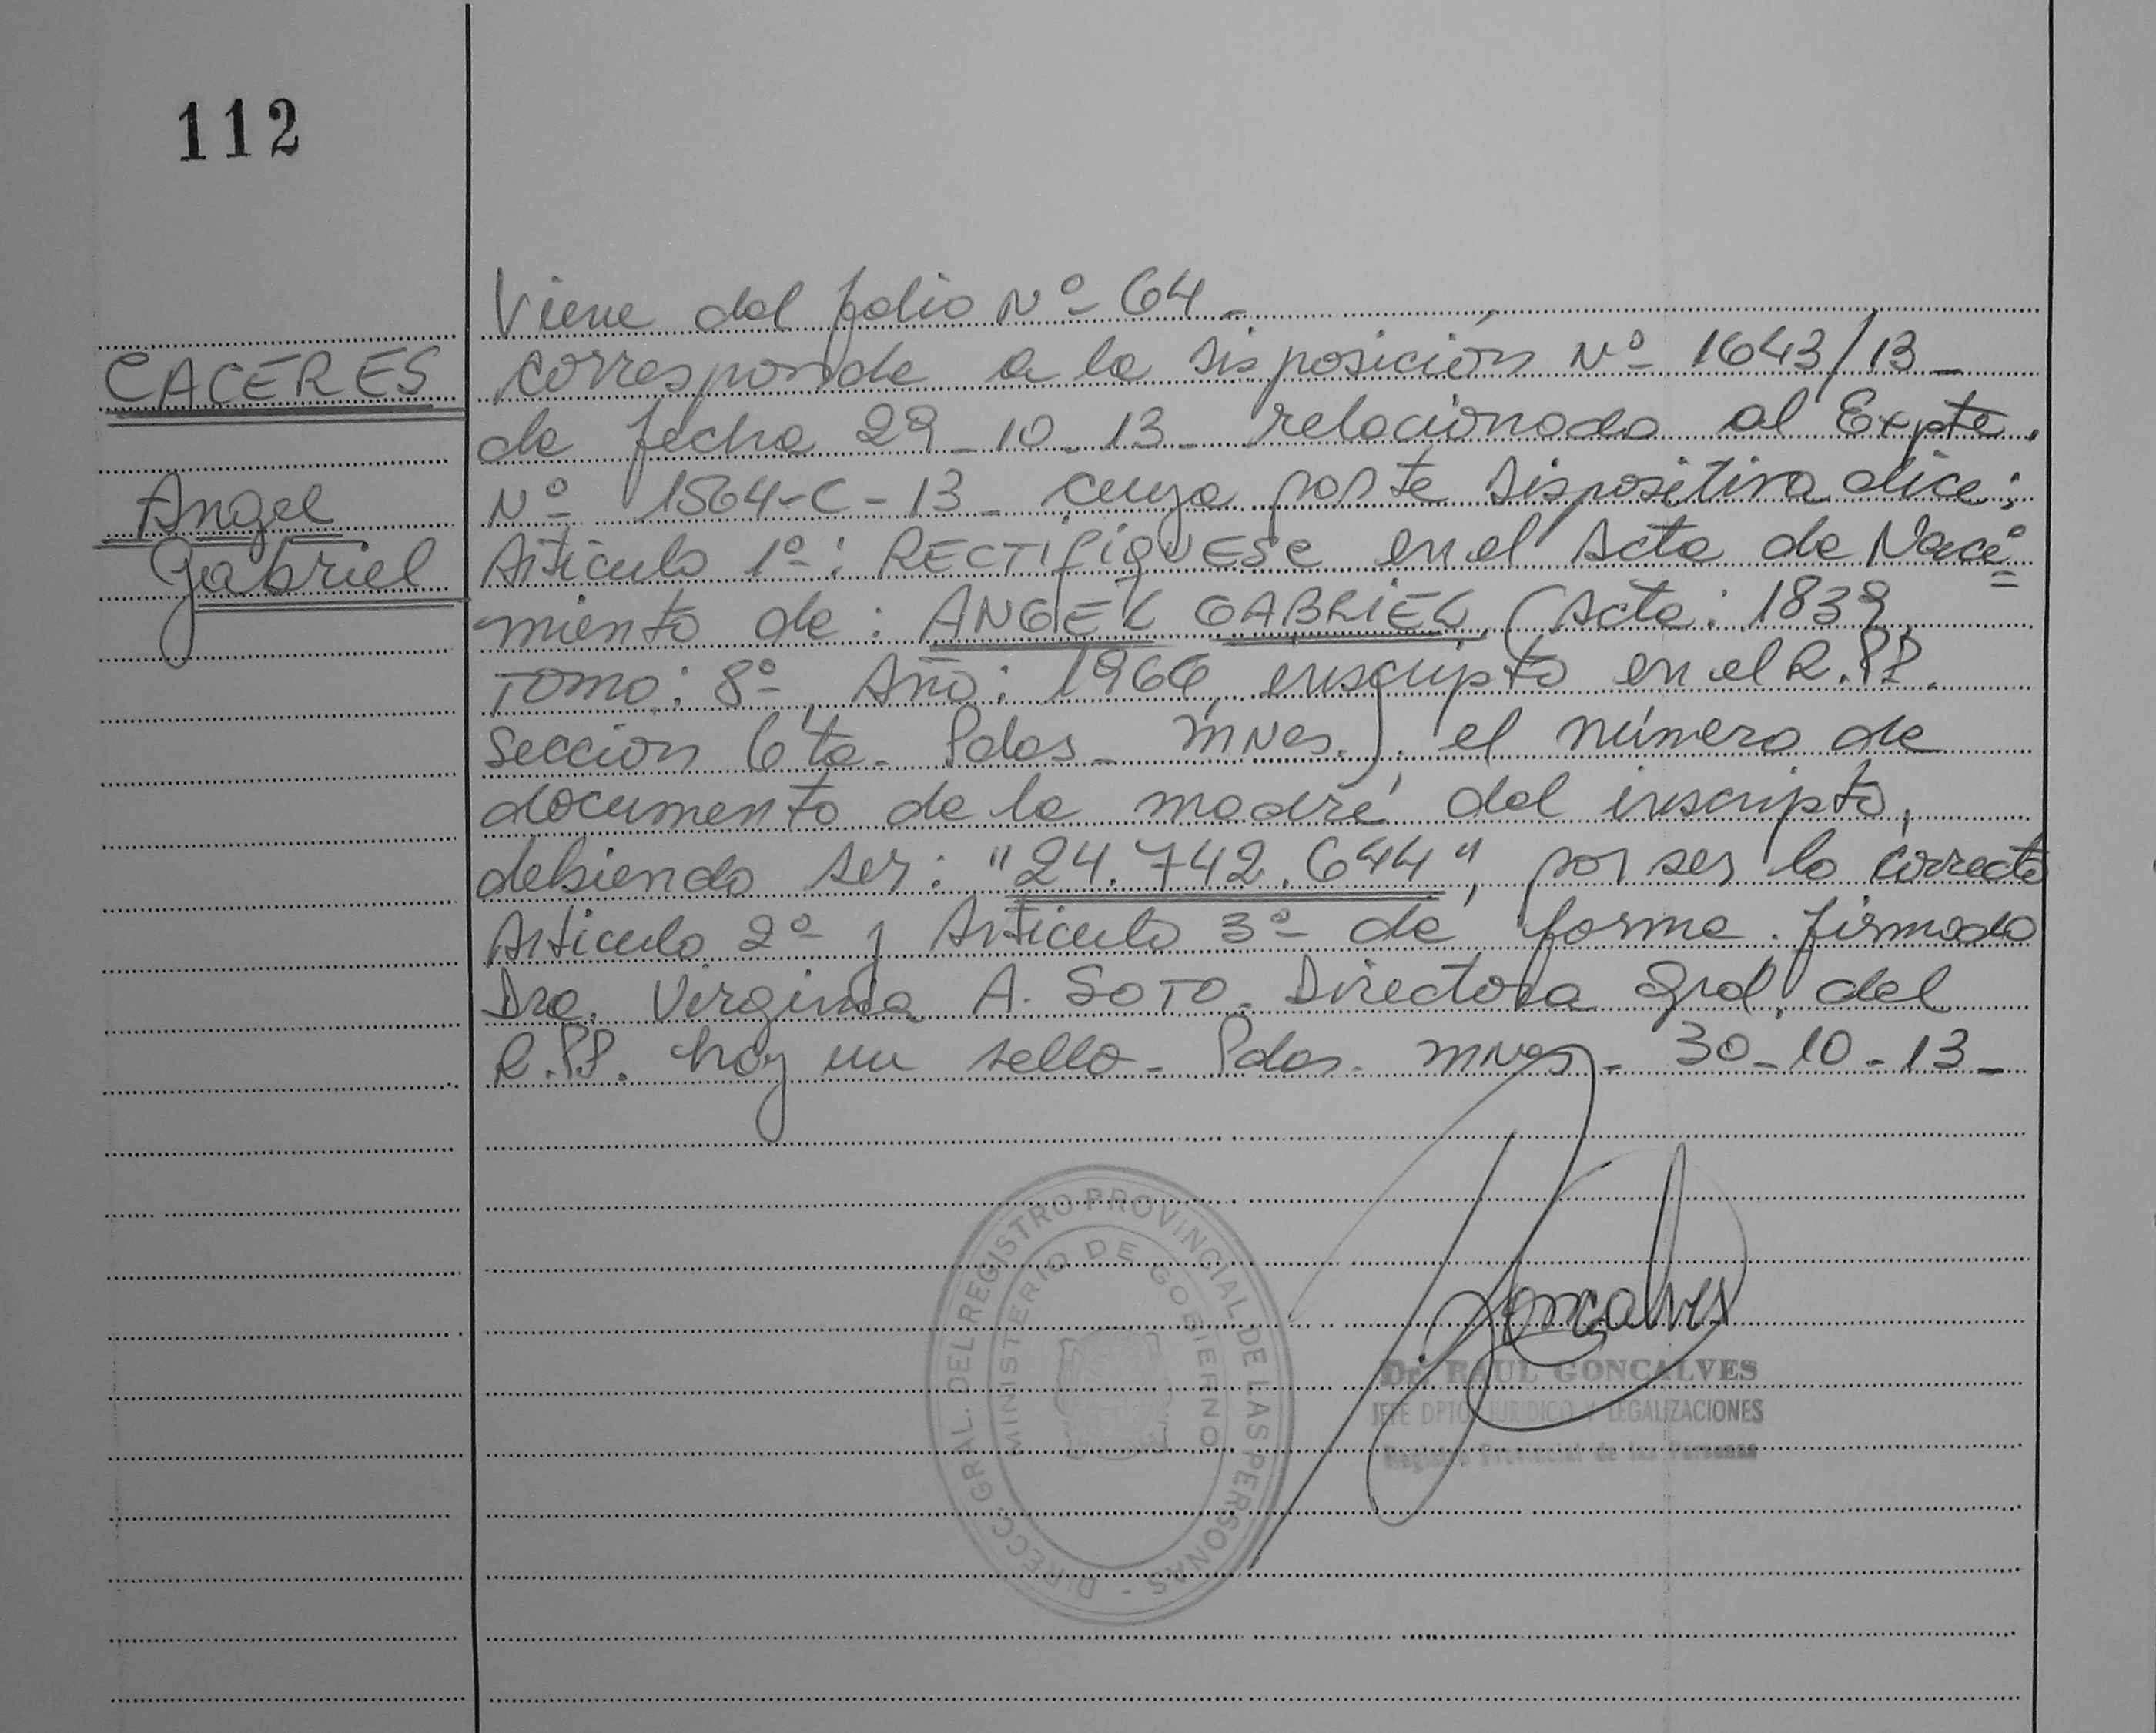 112
Viene del folio Nº 64 -
CACERES
corresponde a la disposición Nº 1643/13 -
de fecha 29 - 10 - 13 - relacionada al Expte.
Angel
Nº 1564-C-13 - cuya parte dispositiva dice:
Gabriel
Articulo 1º: RECTIFIQUESE en el Acta de Naci=
miento de: ANGEL GABRIEL (Acta: 1839,
TOMO: 8º, Año: 1966, inscripto en el R.PP.
Seccion 6ta - Pdas - Mnes.) el número de
documento de la madre del inscripto,
debiendo ser: "24.742.644", por ser lo correcto
Articulo 2º y Articulo 3º de forma. firmado
Dra. Virginia A. SOTO. Directora Gral. del
R.PP. hay un sello - Pdas. Mnes - 30 - 10 - 13 -
DIRECC. GRAL. DEL REGISTRO PROVINCIAL DE LAS PERSONAS -
MINISTERIO DE GOBIERNO
Goncalves
Dr. RAUL GONCALVES
JEFE DPTO. JURIDICO Y LEGALIZACIONES
Registro Provincial de las Personas